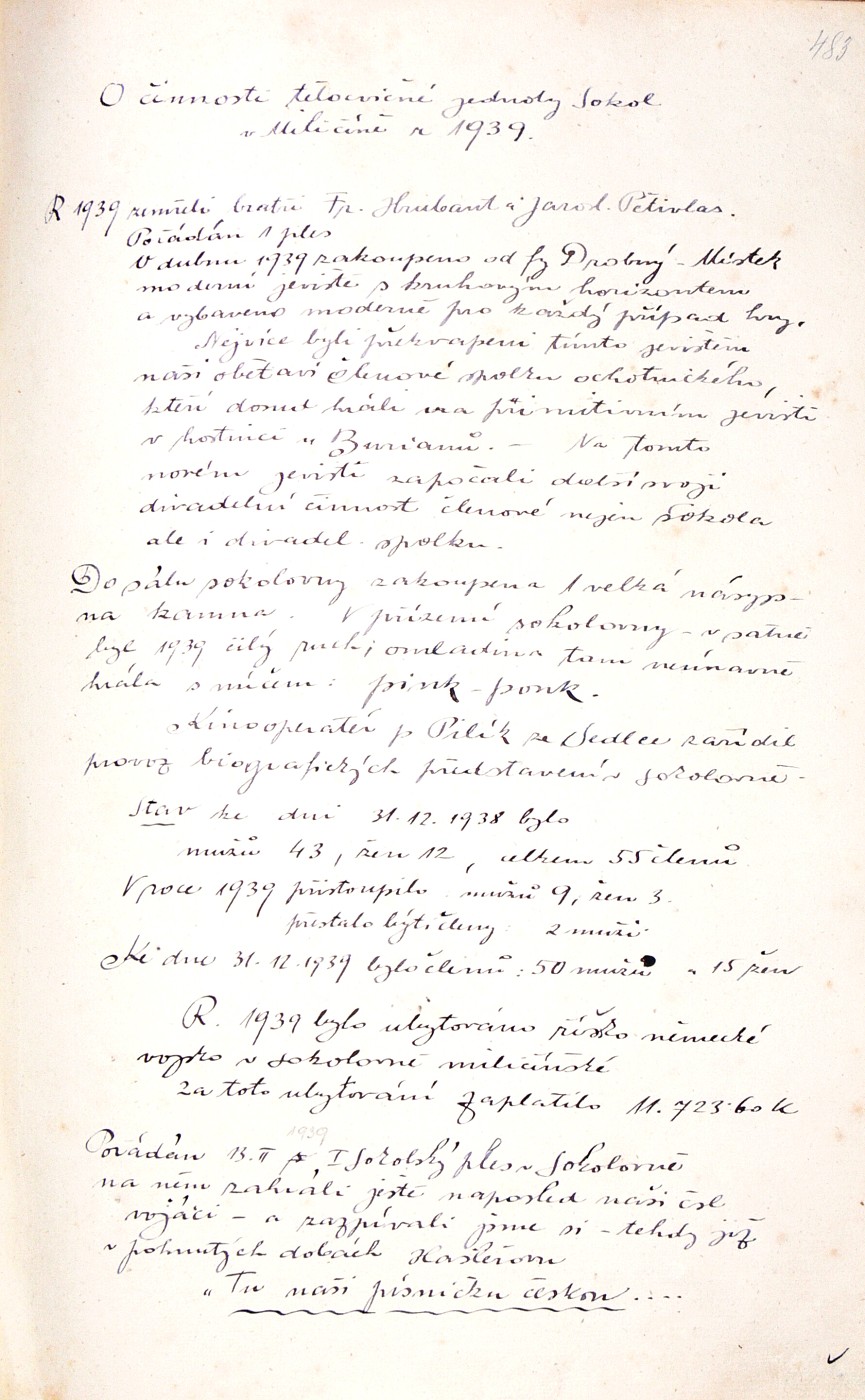 483
O činnosti tělocvičné jednoty Sokol
v Miličíně r 1939.
R 1939 zemřeli bratři Fr. Hrubant a Jarosl. Pětivlas.
Pořádán 1 ples
V dubnu 1939 zakoupeno od fy Drobný - Místek
moderní jeviště s kruhovým horizontem
a vybaveno moderně pro každý případ hry.
Nejvíce byli překvapeni tímto jevištěm
naši obětaví členové spolku ochotnického,
kteří dosud hráli na primitivním jevišti
v hostinci u Burianů. - Na tomto
novém jevišti započali další svoji
divadelní činnost členové nejen Sokola
ale i divadel. spolku.
Do sálu sokolovny zakoupena 1 velká násyp-
ná kamna. V přízemí sokolovny - v šatně
byl 1939 čilý ruch; omladina tam neúnavně
hrála s míčem: pink-ponk.
Kinooperatér p Pilík ze Sedlce zařídil
provoz biografických představení v sokolovně -
Stav ke dni 31.12.1938 bylo
mužů 43, žen 12, celkem 55 členů
V roce 1939 přistoupilo mužů 9, žen 3.
přestalo býti členy: 2 muži.
Ke dne 31.12.1939 bylo členů: 50 mužů a 15 žen
R. 1939 bylo ubytováno říšsko německé
vojsko v sokolovně miličínské
Za toto ubytování zaplatilo 11.723.60 K
1939
Pořádán 13.II I Sokolský ples v Sokolovně
na něm zahráli ještě naposled naši čsl
vojáci - a zazpívali jsme si - tehdy již
v pohnutých dobách Hašlerovu
"Tu naši písničku českou ....